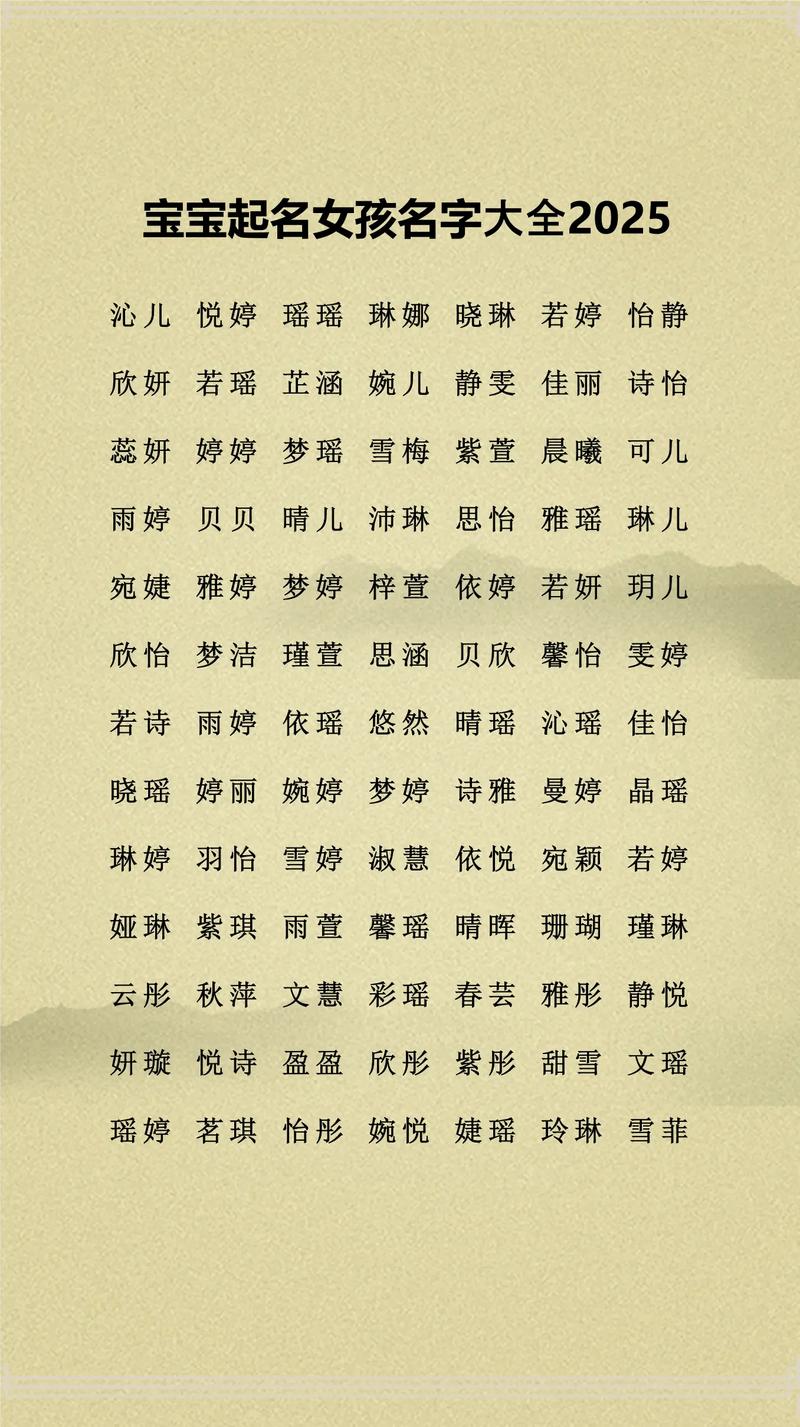 宝宝起名女孩名字大全2025
沁儿 悦婷 瑶瑶 琳娜 晓琳 若婷 怡静
欣妍 若瑶 芷涵 婉儿 静雯 佳丽 诗怡
蕊妍 婷婷 梦瑶 雪梅 紫萱 晨曦 可儿
雨婷 贝贝 晴儿 沛琳 思怡 雅瑶 琳儿
宛婕 雅婷 梦婷 梓萱 依婷 若妍 玥儿
欣怡 梦洁 瑾萱 思涵 贝欣 馨怡 雯婷
若诗 雨婷 依瑶 悠然 晴瑶 沁瑶 佳怡
晓瑶 婷丽 婉婷 梦婷 诗雅 曼婷 晶瑶
琳婷 羽怡 雪婷 淑慧 依悦 宛颖 若婷
娅琳 紫琪 雨萱 馨瑶 晴晖 珊瑚 瑾琳
云彤 秋萍 文慧 彩瑶 春芸 雅彤 静悦
妍璇 悦诗 盈盈 欣彤 紫彤 甜雪 文瑶
瑶婷 茗琪 怡彤 婉悦 婕瑶 玲琳 雪菲